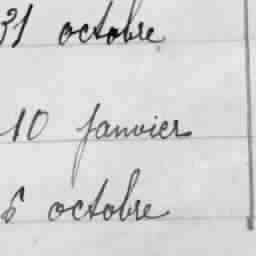 31 octobre
10 janvier
6 octobre